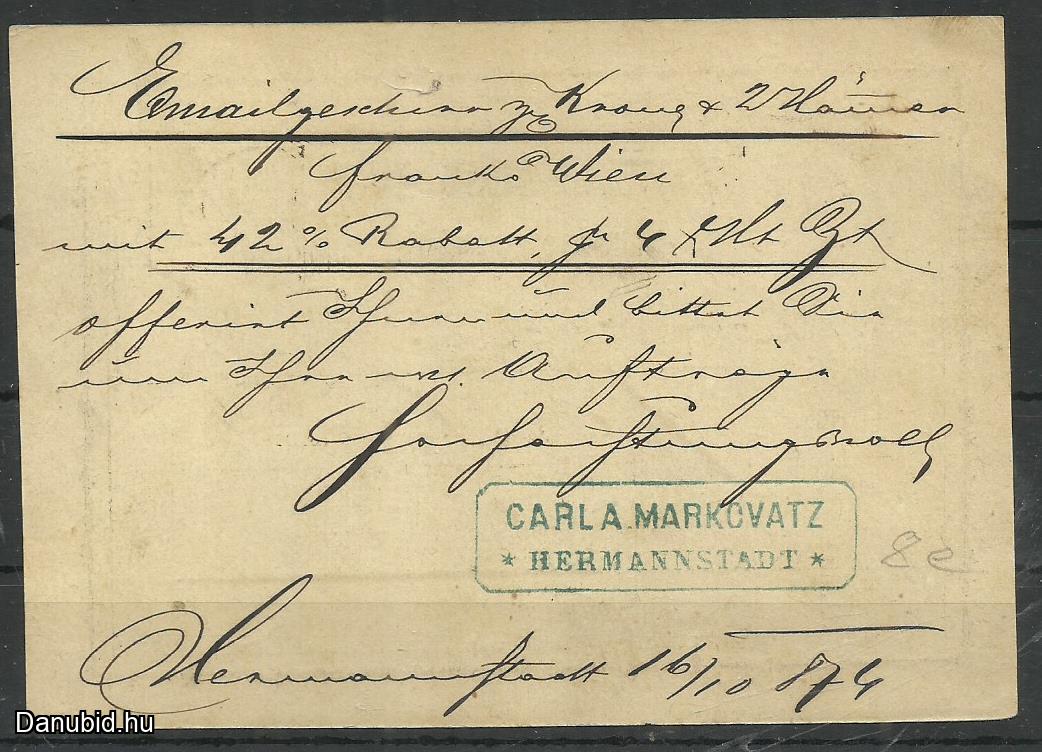 Emailgeschirr zu Krone & 2 Hämer
franko Wien
mit 42 % Rabatt, pr 4 Mt Zt
offerirt Ihnen und bittet Sie
um Ihre Aufträge
Hochachtungsvoll
CARL A. MARKOVATZ
* HERMANNSTADT *
82
Hermannstadt 16/10 874
Danubid.hu